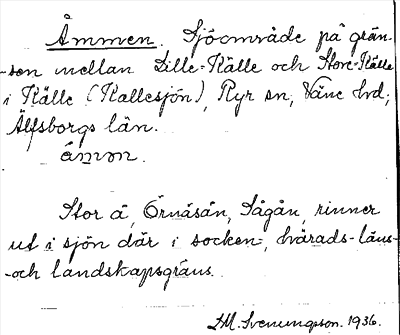 Åmmen. Sjöområde på grän-
-sen mellan Lille-Källe och Store-Källe
i Källe (Kallesjön), Ryr sn, Väne hd,
Älfsborgs län.
åmən.
Stor å, Örnäsån, Sågån, rinner
ut i sjön där i socken-, härads- läns-
-och landskapsgräns.
M. Svenungson. 1936.